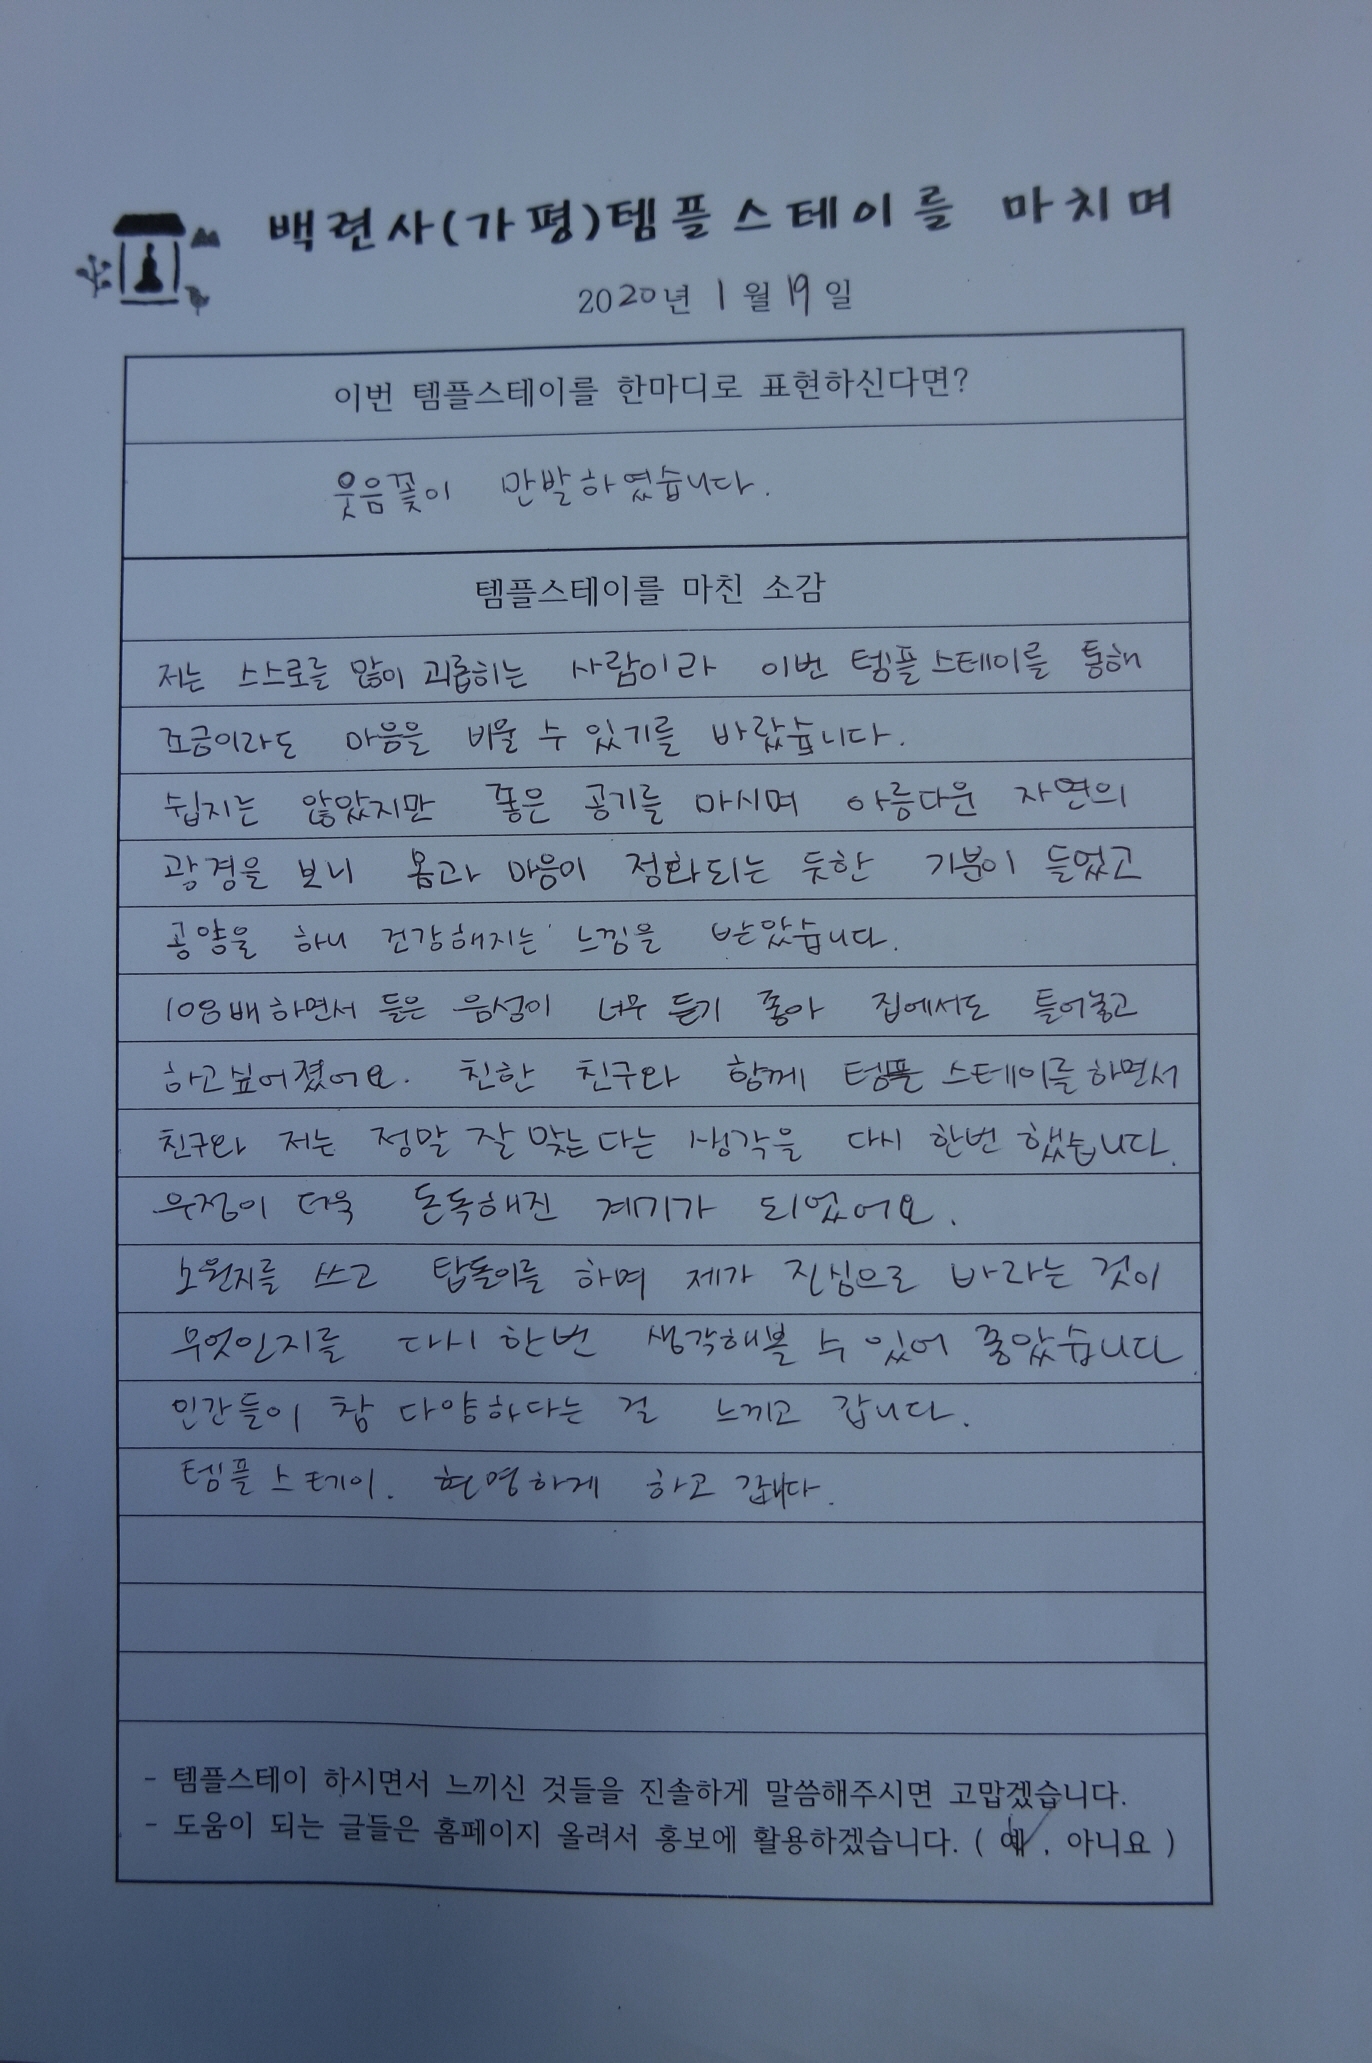 백련사(가평)템플스테이를 마치며
2020년 1월 19일
이번 템플스테이를 한마디로 표현하신다면?
웃음꽃이 만발하였습니다.
템플스테이를 마친 소감
저는 스스로를 많이 괴롭히는 사람이라 이번 템플스테이를 통해
조금이라도 마음을 비울 수 있기를 바랐습니다.
쉽지는 않았지만 좋은 공기를 마시며 아름다운 자연의
광경을 보니 몸과 마음이 정화되는 듯한 기분이 들었고
공양을 하니 건강해지는 느낌을 받았습니다.
108배 하면서 들은 음성이 너무 듣기 좋아 집에서도 틀어놓고
하고싶어졌어요. 친한 친구와 함께 템플스테이를 하면서
친구와 저는 정말 잘 맞는다는 생각을 다시 한번 했습니다.
우정이 더욱 돈독해진 계기가 되었어요.
소원지를 쓰고 탑돌이를 하며 제가 진심으로 바라는 것이
무엇인지를 다시 한번 생각해볼 수 있어 좋았습니다.
인간들이 참 다양하다는 걸 느끼고 갑니다.
템플스테이. 현명하게 하고 갑니다.
- 템플스테이 하시면서 느끼신 것들을 진솔하게 말씀해주시면 고맙겠습니다.
- 도움이 되는 글들은 홈페이지 올려서 홍보에 활용하겠습니다. ( 예 , 아니요 )